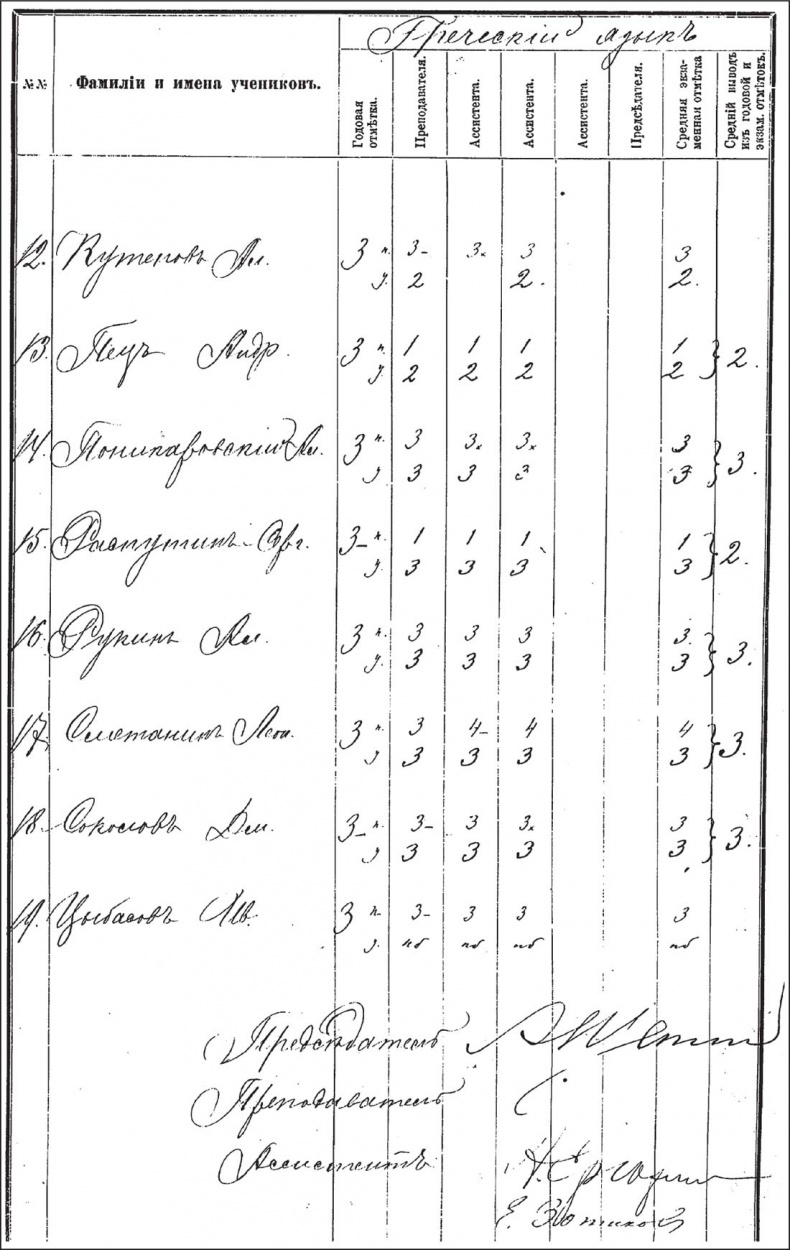 Греческій языкъ
№№ Фамиліи и имена учениковъ. Годовая отмѣтка. Преподавателя. Ассистента. Ассистента. Ассистента. Предсѣдателя. Средняя экза-менная отмѣтка Средній выводъ изъ годовой и экзам. отмѣтокъ.
12. Кутеповъ Ал. 3 п. 3- 3х 3 3
у. 2 2. 2.
13. Пецъ Андр. 3 п. 1 1 1 1 } 2.
у. 2 2 2 2
14. Поникаровскій Ал. 3 п. 3 3х 3х 3 } 3.
у 3 3 3 3
15. Распутинъ Сврг. 3- п. 1 1 1 1 } 2.
у. 3 3 3 3
16. Рукинъ Ал. 3 п. 3 3 3 3. } 3.
у. 3 3 3 3
17. Сметанинъ Леон. 3 п. 3 4- 4 4 } 3.
у 3 3 3 3
18. Соколовъ Дм. 3- п. 3- 3 3х 3 } 3.
у 3 3 3 3
19. Цыбасовъ Ив. 3 п. 3- 3 3 3
у. нб нб нб нб
Предсѣдатель
Преподаватель
Ассистентъ